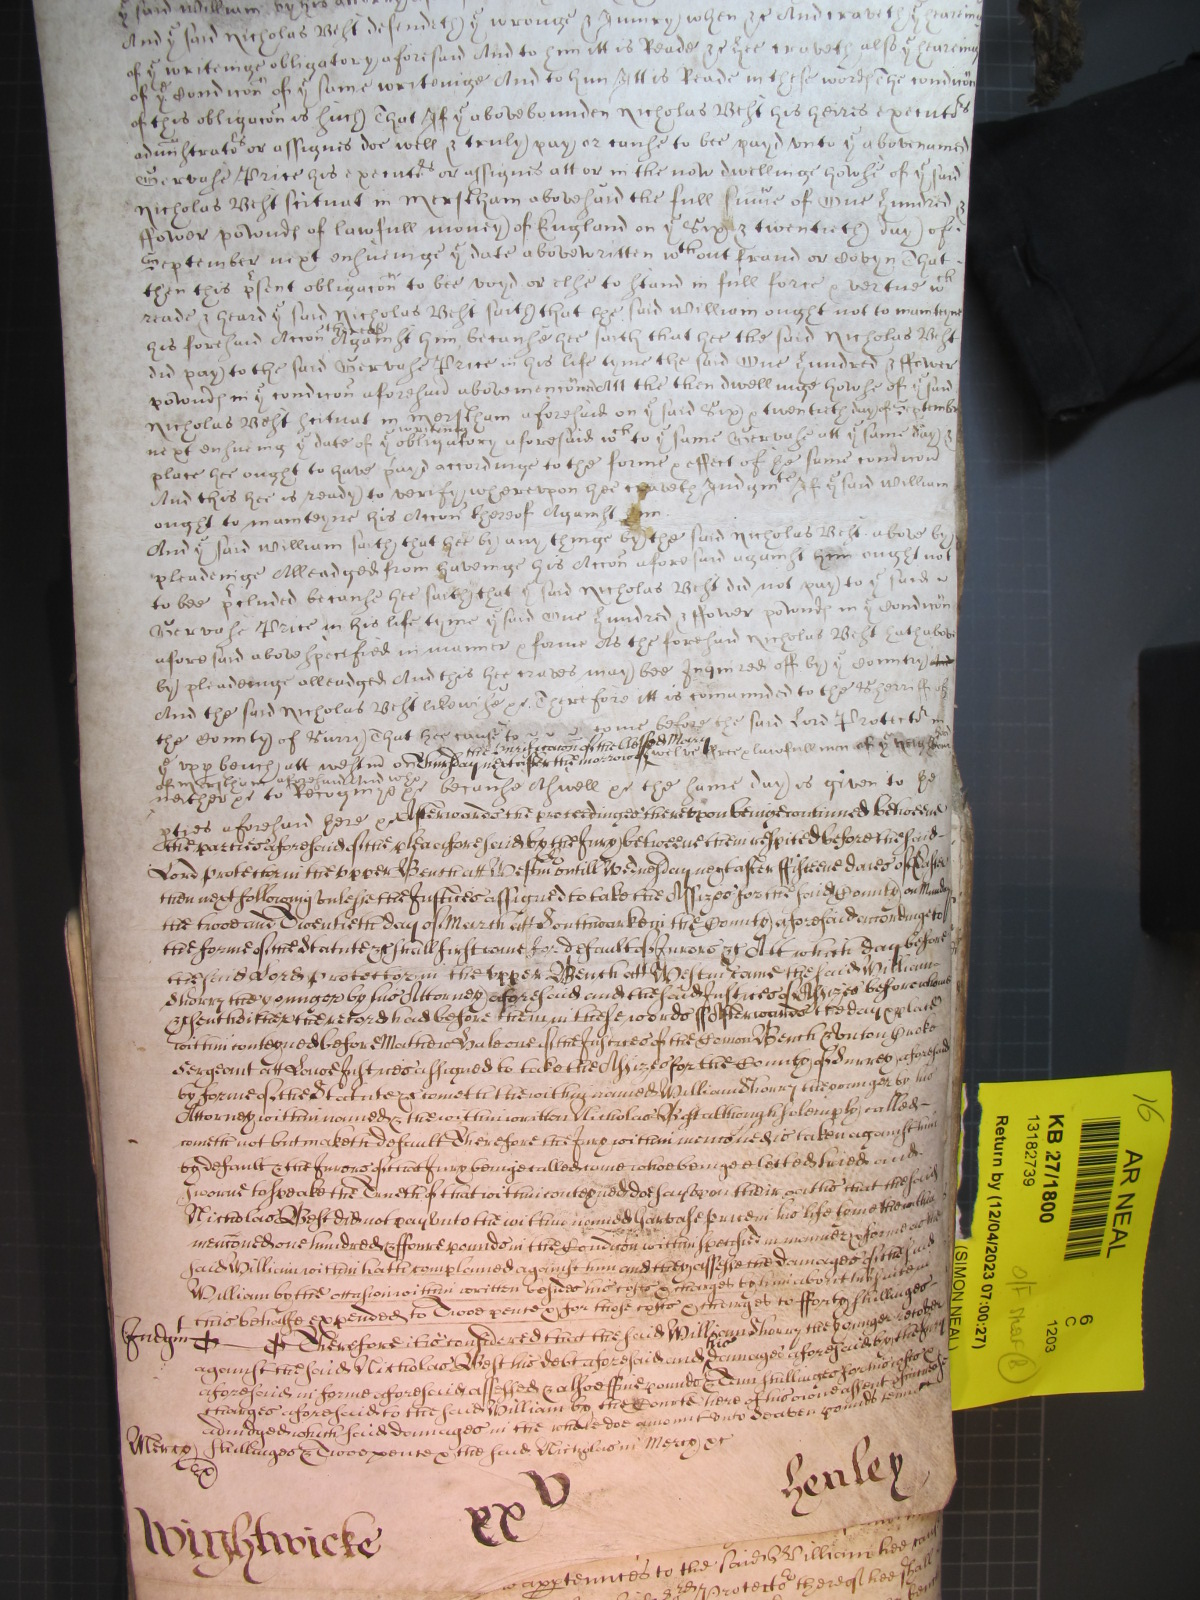 said William by his Attorney
And ye said Nicholas West defendeth ye wronge & Iniury when &c And craveth ye heareing
of ye writeinge obligatory aforesaid And to him itt is Reade &c hee craveth alsoe ye heareing
of ye Condicōn of ye same writeinge And to him Itt is Reade in these words The condicōn
of this obligacōn is such That If ye abovebounden Nicholas West his heires executors
administrators or assignes doe well & truly pay or cause to bee payd unto ye abovenamed
Gervase Price his executors or assignes att or in the now dwellinge howse of ye said
Nicholas West scituat in Merstham abovesaid the full summe of One hundred &
ffower pownds of lawfull money of England on ye Six & twentieth day of
September next ensueinge ye date abovewritten wthout fraud or Covyn That
then this psent obligacōn to bee voyd or else to stand in full force & vertue wch
reade & heard ye said Nicholas West saith that the said William ought not to mainteyne
his foresaid Accōn thereof Against him because hee saith that hee the said Nicholas West
did pay to the said Gervase Price in his life tyme the said One hundred & ffower
pownds in ye condicōn aforesaid abovemencōned Att the then dwellinge howse of ye said
Nicholas West scituat in Merstham aforesaid on ye said Six & twentieth day of September
next ensueing ye date of ye writeinge obligatory aforesaid wch to ye same Gervase att ye same day &
place hee ought to have payd accordinge to the forme & effect of the same condicōn
And this hee is ready to verify whereupon hee craveth Iudgmte If ye said William
ought to mainteyne his Accōn thereof Against him.
And ye said William saith that hee by any thinge by the said Nicholas West above by
pleadeinge Alleadged from haveinge his Accōn aforesaid against him ought not
to bee pcluded because hee saith that ye said Nicholas West did not pay to ye said
Gervase Price in his life tyme ye said One hundred & ffower pownds in ye Condicōn
aforesaid above specified in manner & forme As the foresaid Nicholas West hath above
by pleadeinge alleadged And this hee craves may bee Inquired off by ye Country
And the said Nicholas West likewise &c Therefore itt is comainded to the Sherriff of
the County of Surry That hee cause to come before the said Lord Protector in
ye upp bench att westm on Thursday next after the morrow of the Purification of the blessed Mary twelve free & lawfull men of ye
of Merstham aforesaid And who
neither &c to Recognize &c because Aswell &c the same day is given to the
pties aforesaid here &c Afterwards the proceedinges thereupon beinge continued betweene
the parties aforesaid of the plea aforesaid by the Jury betweene them respited before the said
Lord protector in the upper Bench att Westm untill Wednesday next after fifteene daies of Easter
then next following unlesse the Justices assigned to take the Assizes for the said County on Munday
the twoe and Twentieth day of March att Southwarke in the County aforesaid accordinge to
the forme of the Statute &c shall first come for default of Jurors &c Att which day before
the said Lord Protector in the upper Bench att Westm came the said William
Shorry the younger by his Attorney aforesaid and the said Justices of Assizes before whome
&c sent hither their record had before them in these words ss Afterwards the day & place
within conteyned before Mathew Hale one of the Justices of the Comon Bench & Unton Croke
Sergeant att Lawe Justices assigned to take the Assizes for the County of Surrey aforesaid
by forme of the statute &c cometh the within named William Shorry the younger by his
Attorney within named & the within written Nicholas West although solemply called
cometh not but maketh default Therefore the Jury within mencōned is taken against him
by default & the Jurors of that Jury beinge called come whoe beinge elected tried and
sworne to speake the Trueth of that within conteyned doe say upon their oathes that the said
Nicholas West did not pay unto the within named Garvase Price in his life tyme the within
mencōned one hundred & ffoure pounds in the Condicōn within specified in manner & forme as the
said William within hath complained against him and they assesse the damages of the said
William by the occasion within written besides his costs & charges by him about his suite in
this behalfe expended to Twoe pence & for those costs & charges to fforty shillinges
Judgm Therefore it is considered that the said William Shorry the younger recover
against the said Nicholas West his debt aforesaid and his damages aforesaid by the Jury
aforesaid in forme aforesaid assessed & alsoe ffive pounds & Tenn shillinges for his costs &
charges aforesaid to the said William by the Courte here of his owne assent
adiudged which said damages in the whole doe amount unto Seaven pounds tenn
Mercy shillinges & Twoe pence & the said Nicholas in Mercy &c
Wightwicke xx v Henley
appteynes to the said William hee
Protector thereof hee shall
16
AR NEAL
KB 27/1800
13182739
Return by (12/04/2023 07:00:27)
6
C
1203
(SIMON NEAL)